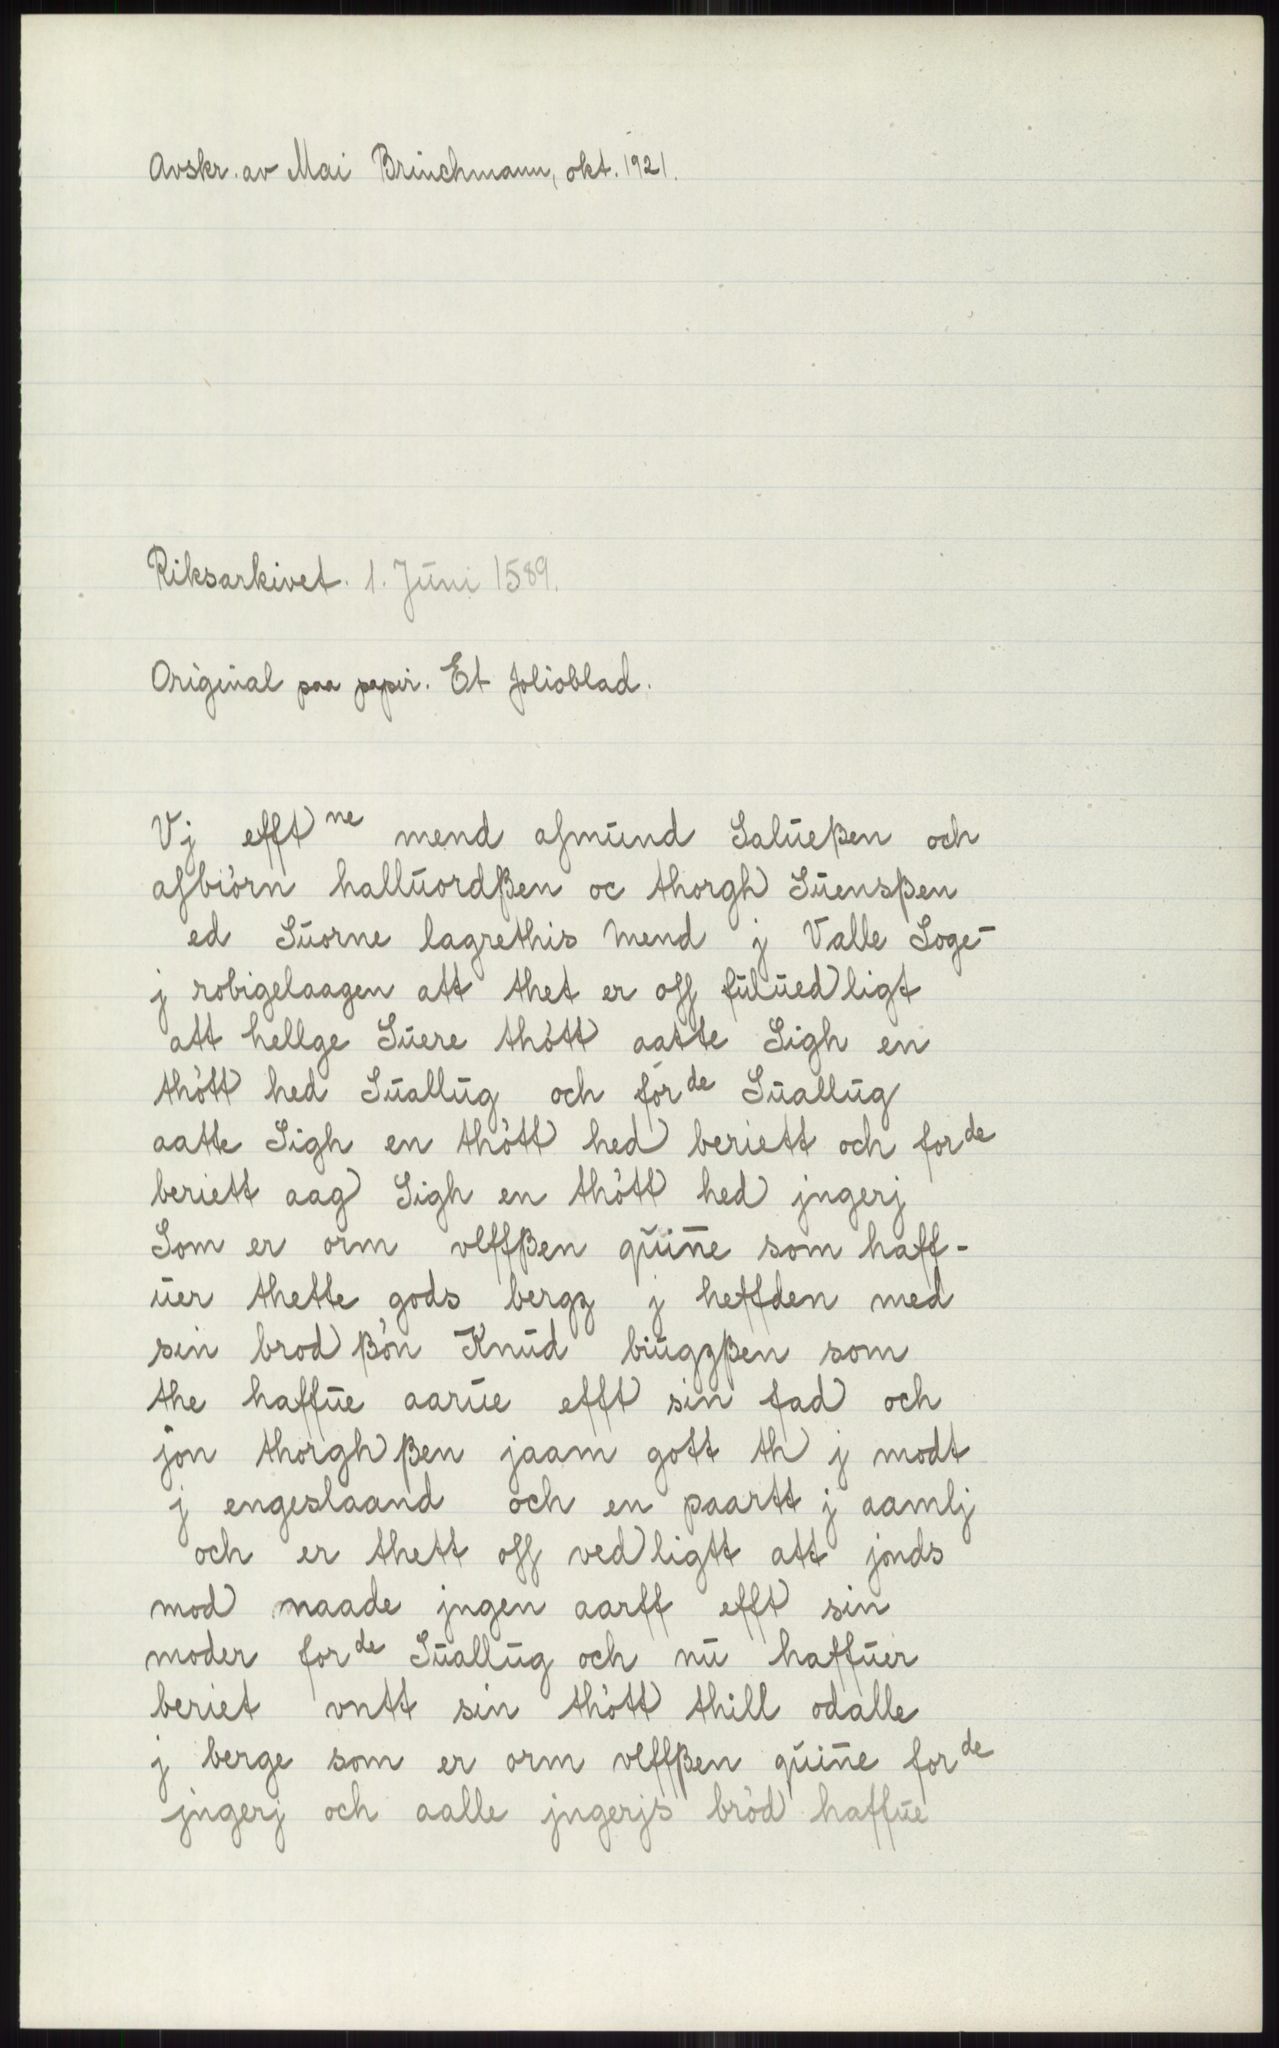 Avskr. av Mai Brinchmann, okt. 1921.
Riksarkivet. 1. Juni 1589.
Original paa papir. Et folioblad.
Vj efft ne mend asmund Salueßen och
asbiörn halluordßen oc thorgh Suensßen
ed Suorne lagrethis mend j Valle Soge-
j robigelaagen att thet er oss fuluedligt
att hellge Suere thött aatte Sigh en
thött hed Suallug och forde Suallug
aatte Sigh en thött hed beriett och forde
beriett aag Sigh en thött hed jngerj
Som er orm vlffßen quiñe som haff-
uer thette gods bergz j heffden med
sin brod ßön Knud biugzßen som
the haffue aarue efft sin fad och
jon thorghßen jaam gott th j modt
j engeslaand och en paartt j aamlj
och er thett oss vedligtt att jonds
mod maade jngen aarff efft sin
moder forde Suallug och nu haffuer
beriet vntt sin thött thill odalle
j berge som er orm vlffßen quiñe forde
jngerj och aalle jngerjs bröd haffue